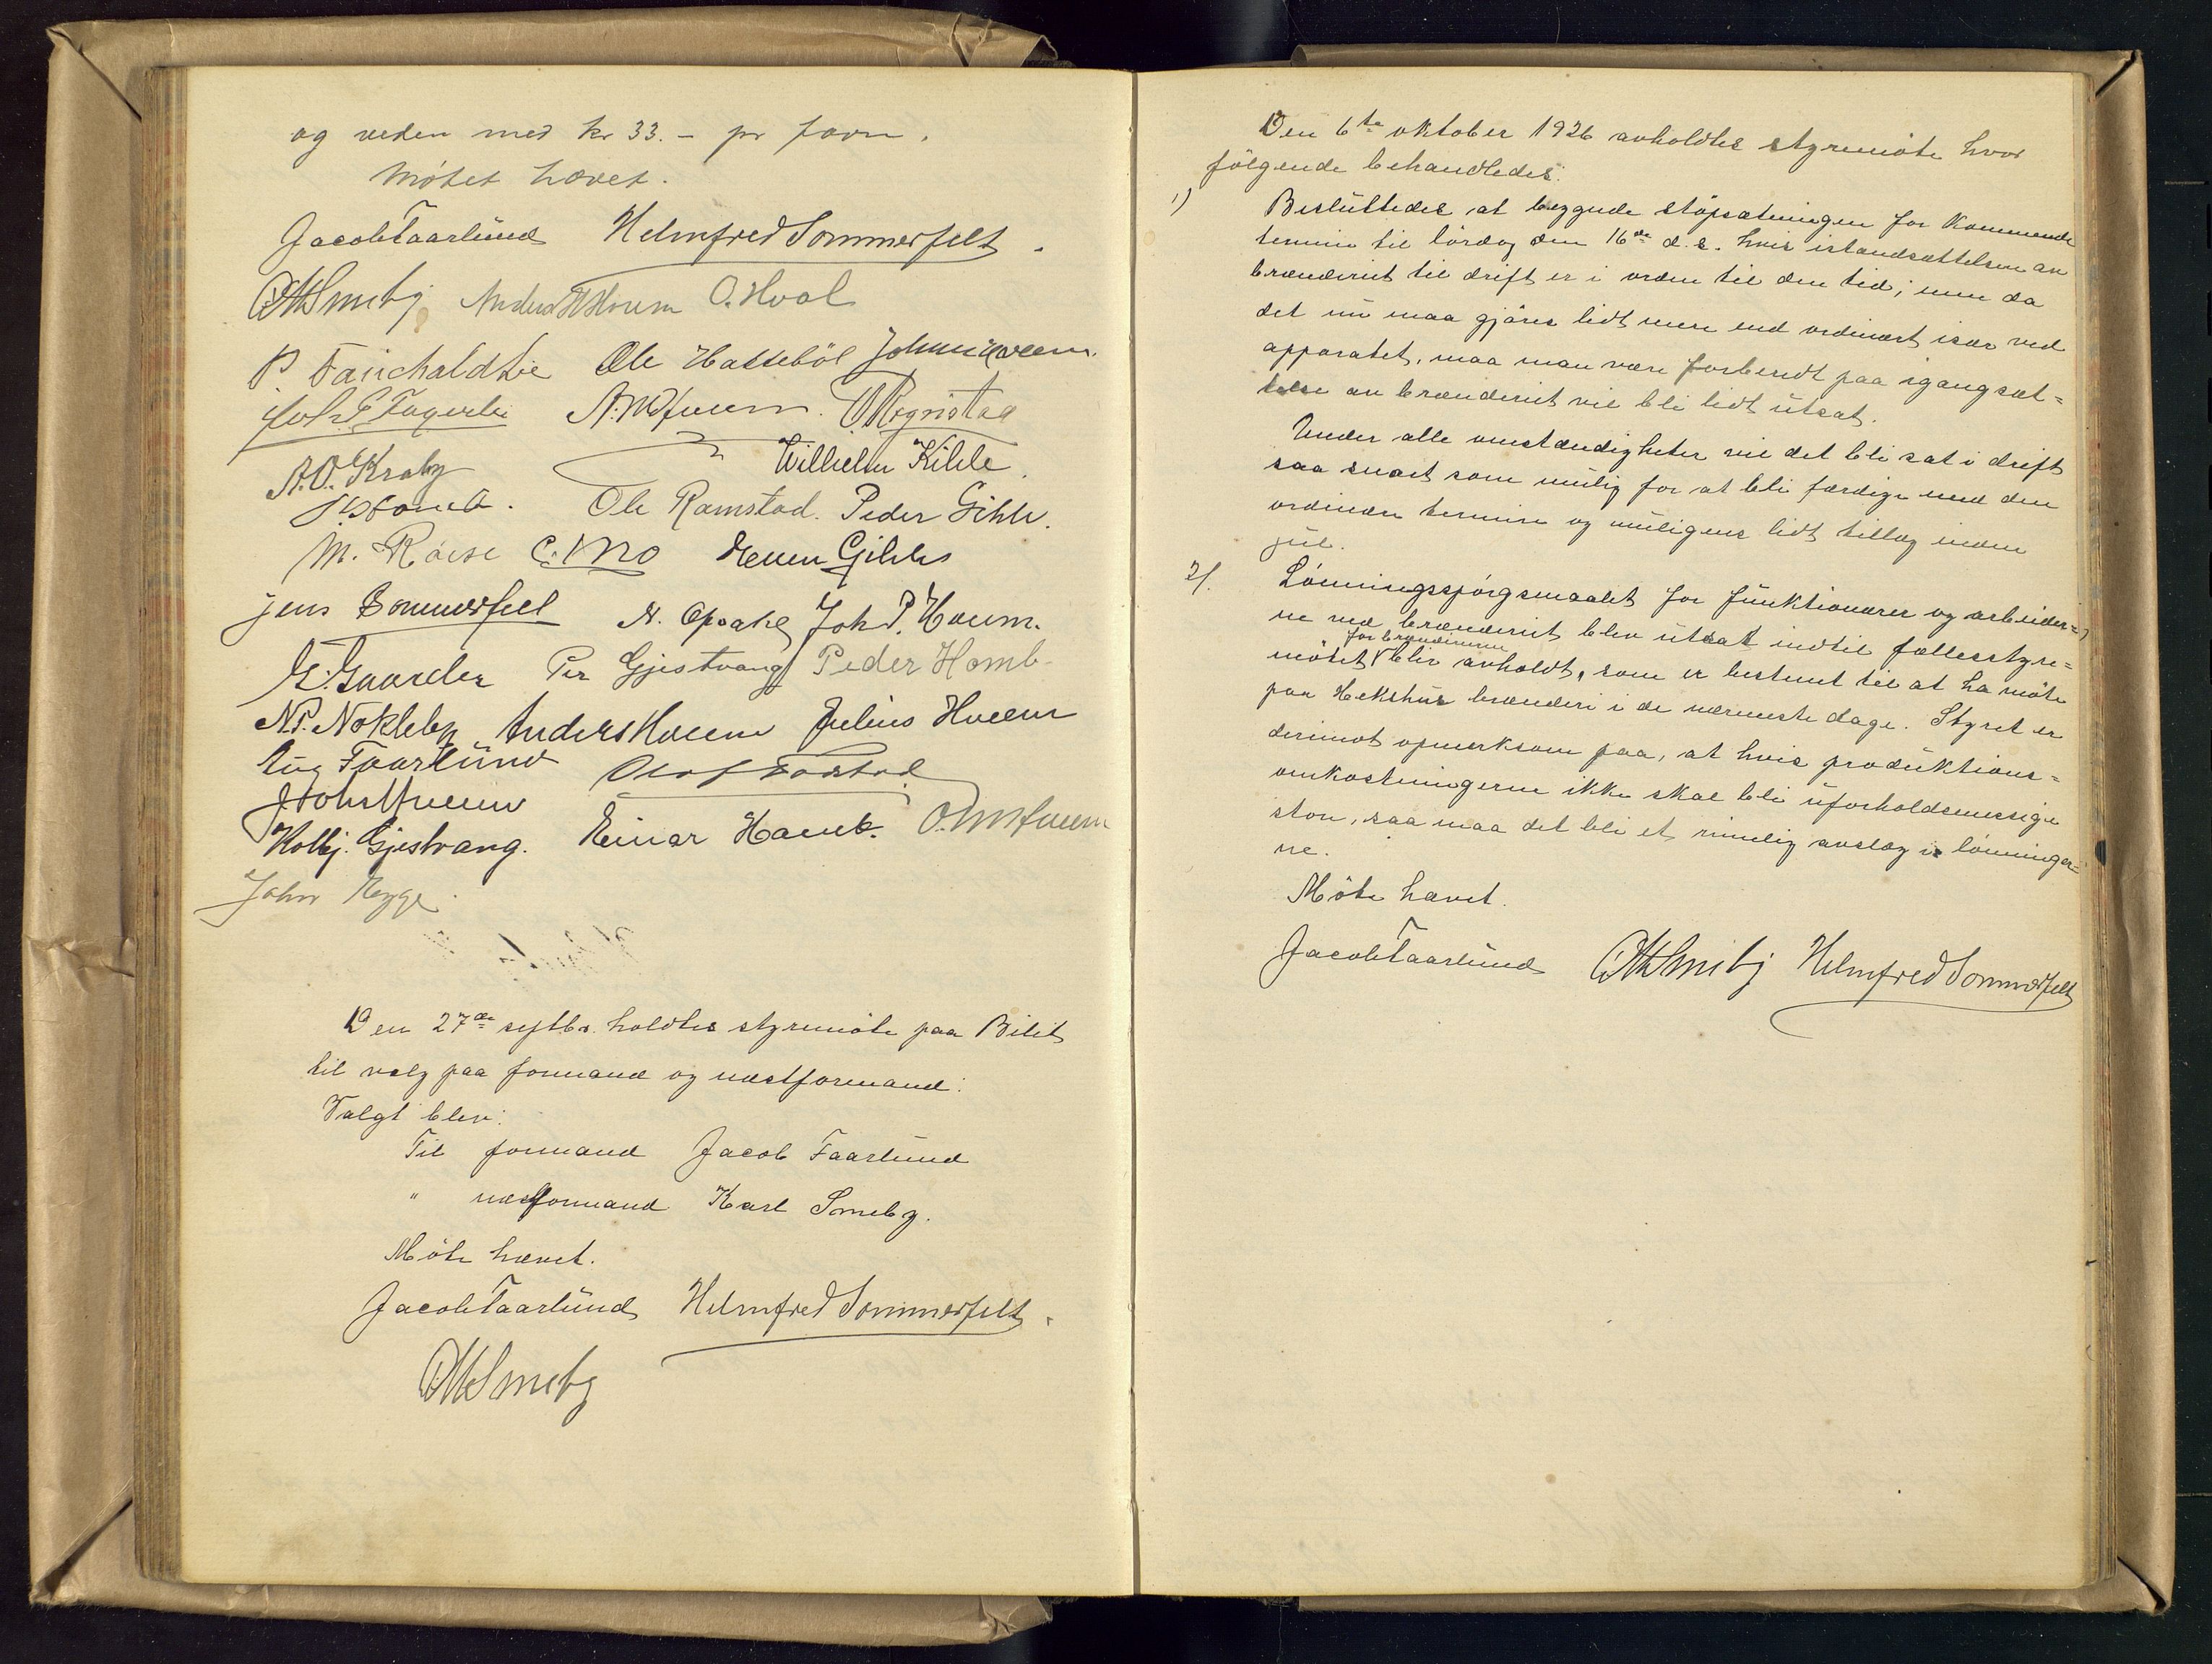 og veden med kr 33.- pr favn.
Møtet hævet.
Jacob Faarlund Helmfred Sommerfelt.
O.K. Smeby Anders H. Hveem O. Hval
P. Fauchald Lie Ole Hasseböl Johan Hveem.
Joh. E. Fagerli A. M. Hveem. O. Regnstad
A.O. Kraby Wilhelm Kihle.
Ole Ramstad. Peder Gihle.
M. Röise C. Mo Even Gihle
Jens Sommerfelt N. Opsahl Joh P. Hveem.
G. Gaarder Per Gjestvang Peder Homb
N.P. Nøkleby Anders Hveem Julius Hveem
Aug Faarlund
Johs Hveem
Kolbj. Gjestvang. Einar Haveb. O. M. Hveem
John Regge.
Den 27de septbr. holdtes styremöte paa Bilit
til valg paa formand og næstformand:
Valgt blev:
Til formand Jacob Faarlund
" næstformand Karl Smeby.
Möte hævet.
Jacob Faarlund Helmfred Sommerfelt.
O.K. Smeby
Den 6te oktober 1926 avholdtes styremöte hvor
fölgende behandledes:
1) Besluttedes at begynde stöpsætningen for kommende
termin til lördag den 16de d.s. hvis istandsættelsen av
brænderiet til drift er i orden til den tid; men da
det nu maa gjöres lidt mere end ordinært især ved
apparatet, maa man være forberedt paa igangsæt=
telse av brænderiet vil bli lidt utsat.
Under alle omstændigheter vil det bli sat i drift
saa snart som mulig for at bli færdige med den
ordinære termin og muligens lidt tillæg inden
jul.
2). Lönningsspörgsmaalet for funktionærer og arbeider=
ne ved brænderiet blev utsat indtil fællesstyre=
for brænderierne
mötet blir avholdt, som er bestemt til at ha möte
paa Hekshus brænderi i de nærmeste dage. Styret er
derimot opmerksom paa, at hvis produktions=
omkostningerne ikke skal bli uforholdsmessige
store, saa maa det bli et rimelig avslag i lönninger=
ne.
Möte hævet.
Jacob Faarlund O.K. Smeby Helmfred Sommerfelt